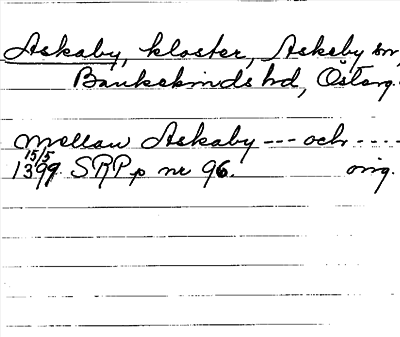 Askaby, kloster, Askeby sn,
Bankekinds hd, Östarg.
mellan Askaby --- och ----
15/5
1399. SRP p nr 96. orig.